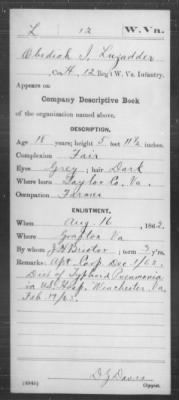 L 12 W.Va.
Obediah I. Lugadder
Co. H, 12 Reg't W. Va. Infantry.
Appears on
Company Descriptive Book
of the organization named above.
DESCRIPTION.
Age 18 years; height 5 feet 11½ inches.
Complexion Fair
Eyes Grey; hair Dark
Where born Taylor Co. Va.
Occupation Farmer
ENLISTMENT.
When Aug. 16, 1862.
Where Grafton Va
By whom J.H. Bristor; term 3 y'rs.
Remarks: Apt Corp. Dec 1/62.
Died of Typhoid Pneumonia
in U.S. Hosp. Winchester Va.
Feb 17/63.
Copyist.